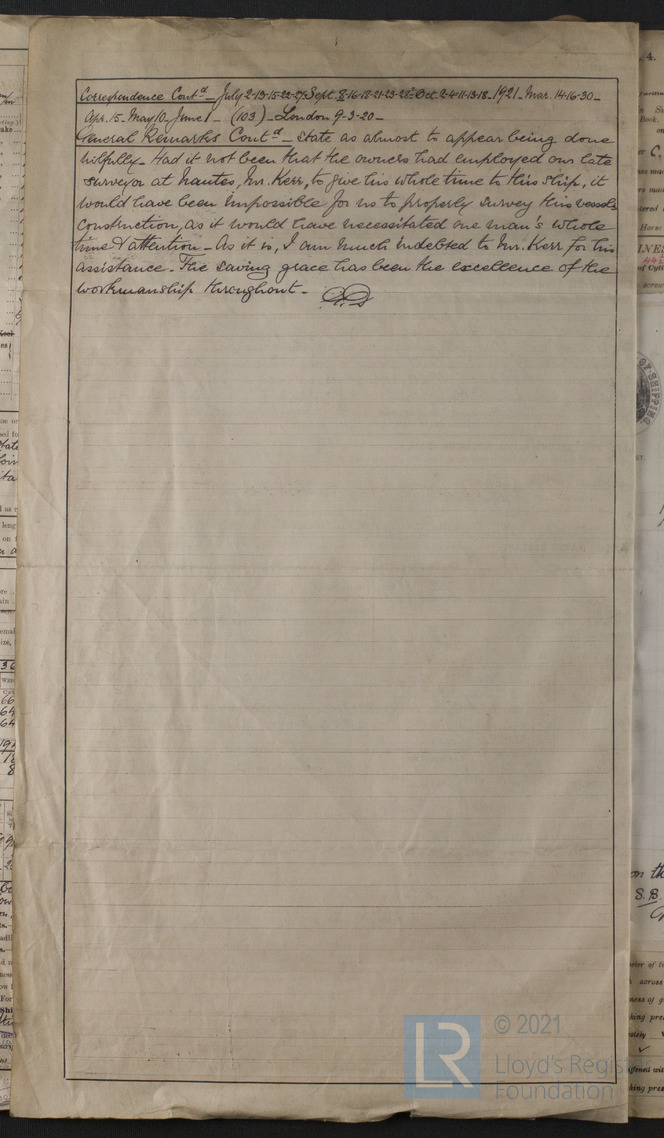 Correspondence Contd – July 2-13-15-22-29. Sept. 8-16-18-21-23-28. Oct. 2-4-11-13-18. 1921 – Mar. 14-16-30 –
Apr. 15 – May 10 – June 1 – (103) – London 9-3-20 –
General Remarks Contd – state as almost to appear being done
wilfully – Had it not been that the owners had employed our late
surveyor at Nantes, Mr. Kerr, to give his whole time to this ship, it
would have been impossible for us to properly survey this vessel's
construction, as it would have necessitated one man's whole
time & attention – As it is, I am much indebted to Mr. Kerr for his
assistance. The saving grace has been the excellence of the
workmanship throughout –
© 2021
LR
Lloyd's Register
Foundation